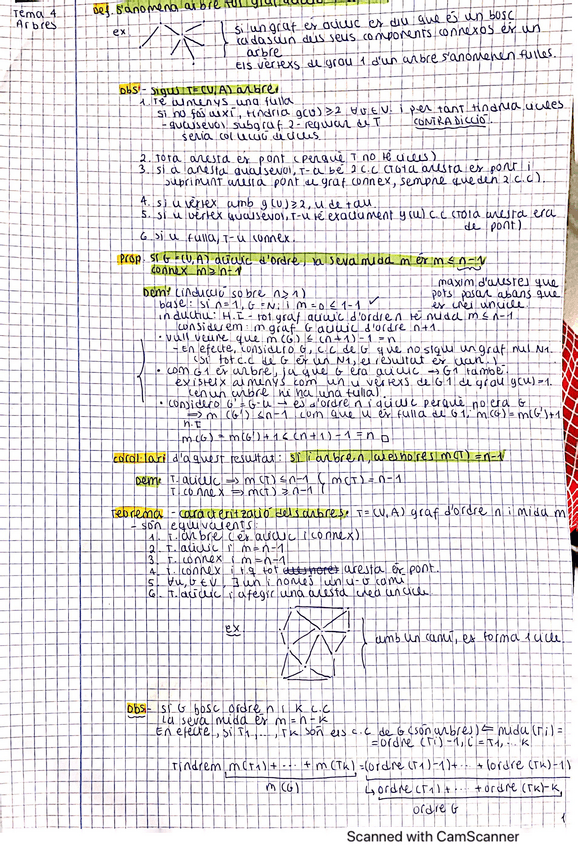 Tema 4 def. s'anomena arbre tot graf acíclic connex
Arbres
ex si un graf és acíclic es diu que és un bosc
cadascun dels seus components connexos és un
arbre
els vèrtexs de grau 1 d'un arbre s'anomenen fulles.
obs - sigui T=(V,A) arbre
1. Té almenys una fulla
si no fos així, tindria g(v)≥2 ∀v∈V i per tant tindria cicles
- qualsevol subgraf 2-regular de T CONTRADICCIÓ.
seria col·lecció de cicles
2. Tota aresta és pont (perquè T no té cicles)
3. si a aresta qualsevol, T-a té 2 c.c (tota aresta és pont i
suprimint aresta pont de graf connex, sempre queden 2 c.c).
4. si u vèrtex amb g(u)≥2, u de tall.
5. si u vèrtex qualsevol, T-u té exactament g(u) c.c (tota aresta era
de pont)
6. si u fulla, T-u connex.
Prop. si G=(V,A) acíclic d'ordre n, la seva mida m és m≤n-1
connex m≥n-1
màxim d'arestes que
pots posar abans que
es creï un cicle
Dem: (inducció sobre n≥1)
base: si n=1, G=N1 i m=0≤1-1 ✓
inductiu: H.I - tot graf acíclic d'ordre n té mida m≤n-1.
considerem: m graf G acíclic d'ordre n+1.
• vull veure que m(G)≤(n+1)-1=n
- En efecte, considero G1 c.c de G que no sigui un graf nul N1.
(si tot c.c de G és un N1, el resultat és vàlid)
• com G1 és arbre, ja que G era acíclic → G1 també
existeix almenys com un u vèrtexs de G1 de grau g(u)=1.
(en un arbre hi ha una fulla)
• considero G'=G-u → és d'ordre n i acíclic perquè no era G
⇒ m(G')≤n-1 com que u és fulla de G1, m(G)=m(G')+1
H.I
m(G)=m(G')+1≤(n+1)-1=n □
corol·lari d'aquest resultat: si T arbre n, aleshores m(T)=n-1
Dem: T. acíclic ⇒ m(T)≤n-1 { m(T)=n-1
T. connex ⇒ m(T)≥n-1
Teorema - caracterització dels arbres: T=(V,A) graf d'ordre n i mida m
- són equivalents:
1. T. arbre (és acíclic i connex)
2. T. acíclic i m=n-1
3. T. connex i m=n-1
4. T. connex i t.q tot aresta és pont.
5. ∀u,v∈V, ∃ un i només un u-v camí
6. T. acíclic i afegir una aresta crea un cicle
ex amb un camí, es forma 1 cicle.
obs - si G bosc ordre n i K c.c
la seva mida és m=n-k
En efecte, si T1,...,TK són els c.c de G (són arbres) ⇐ mida (Ti)=
=ordre (Ti)-1, i=T1,..K
Tindrem m(T1)+...+m(TK)=(ordre (T1)-1)+...+(ordre (TK)-1)
m(G) ↳ordre (T1)+...+ordre (TK)-K
ordre G
1
Scanned with CamScanner